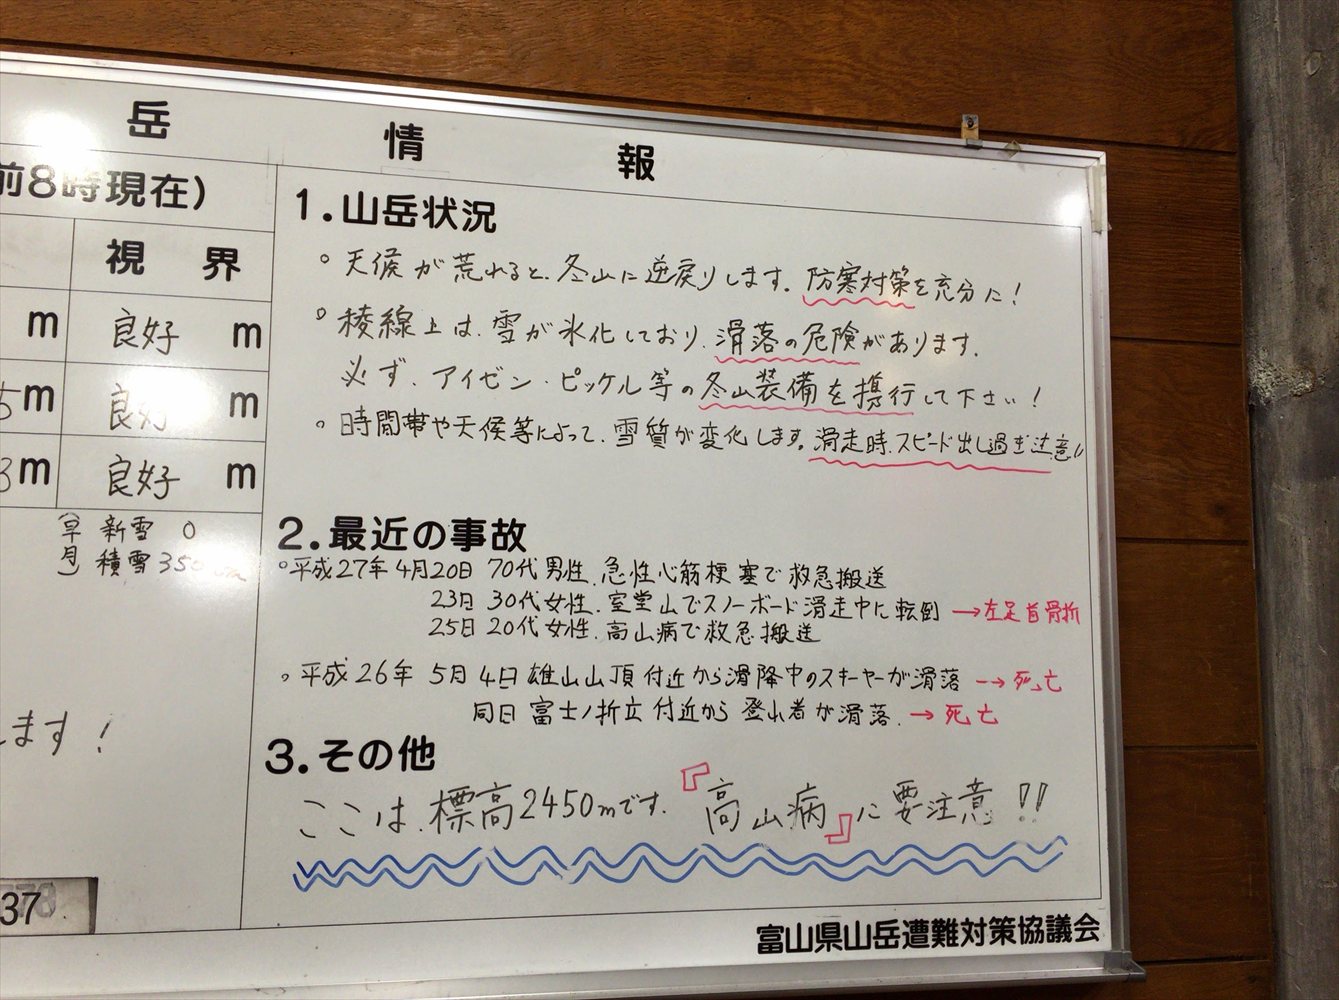 岳 情 報
前8時現在)
視 界
m 良好 m
5m 良好 m
3m 良好 m
(早 新雪 0
月) 積雪 350
ます!
37
1.山岳状況
○天候が荒れると、冬山に逆戻りします。防寒対策を充分に!
○稜線上は、雪が氷化しており、滑落の危険があります。
必ず、アイゼン・ピッケル等の冬山装備を携行して下さい!
○時間帯や天候等によって、雪質が変化します。滑走時、スピード出し過ぎ注意!!
2.最近の事故
○平成27年4月20日 70代男性、急性心筋梗塞で救急搬送
23日 30代女性、室堂山でスノーボード滑走中に転倒 →左足首骨折
25日 20代女性、高山病で救急搬送
○平成26年 5月4日 雄山山頂付近から滑降中のスキーヤーが滑落 →死亡
同日 富士ノ折立付近から登山者が滑落。→死亡
3.その他
ここは、標高2450mです。『高山病』に要注意!!
富山県山岳遭難対策協議会